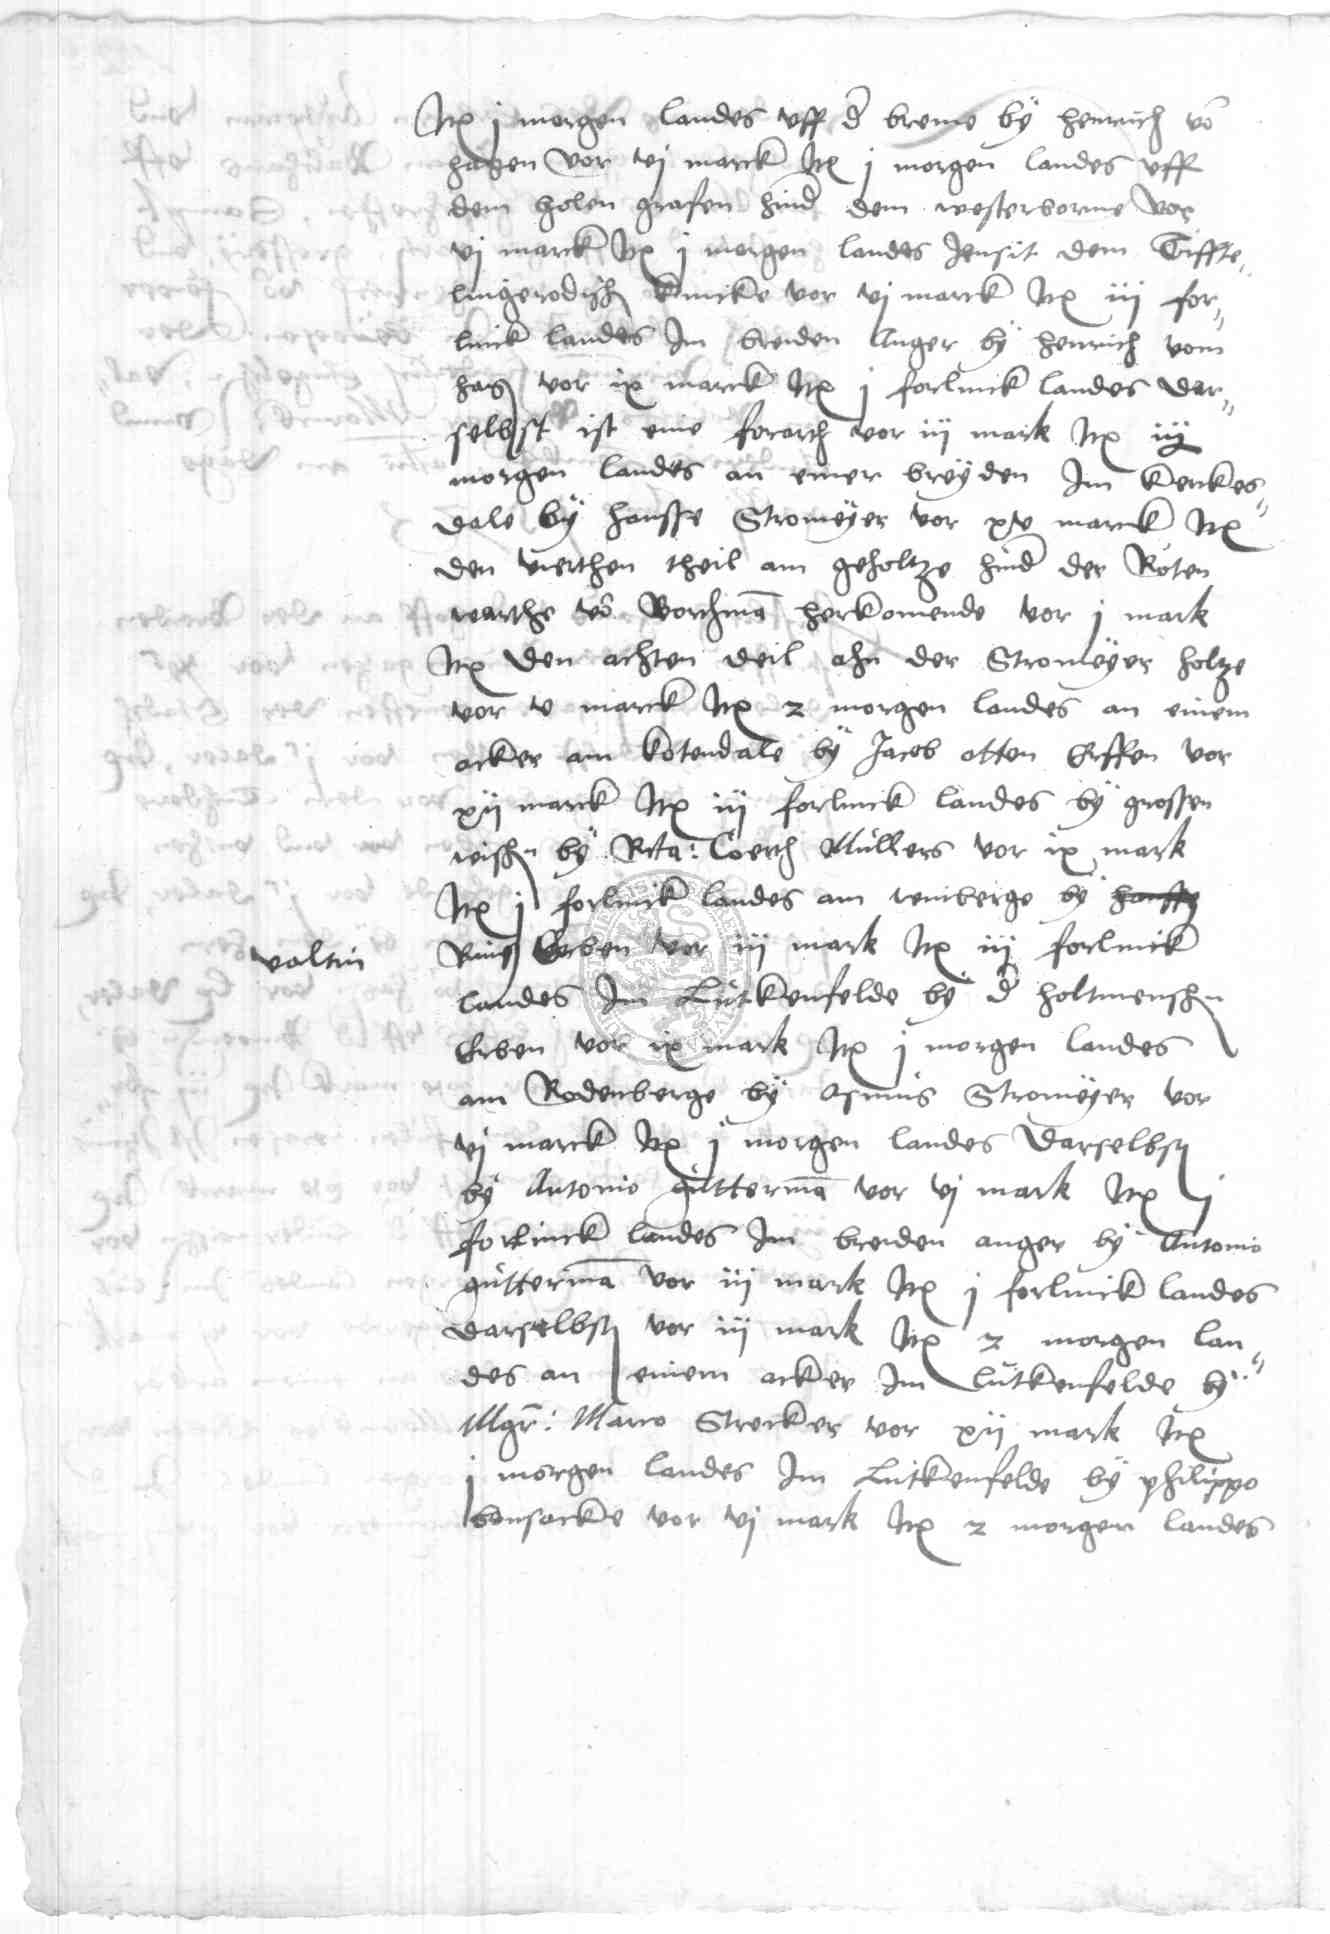 Itē j morgen landes vff d' breme by henrich vō
hagen vor vj marck Itē j morgen landes vff
dem holen grafen hind' dem westerborne vor
vj marck Itē j morgen landes Jensit dem Tiffte„
lingerodisch knicke vor vj marck Itē iij for„
linck landes Im breiden Anger by henrich vom
hag vor ix marck Itē j forlinck landes dar„
selbst ist eine forarth vor iij mark Itē iij
morgen landes an einer breyden Im kerckes„
dale by hansse Stromeyer vor xv marck Itē
den vierthen theil am geholtze hind' der Roten
warthe vō Borchmā herkomende vor j mark
Itē den achten deil ahn der Stromeyer holtze
vor v marck Itē 2 morgen landes an einem
acker am kotendale by Jacob otten Erffen vor
xij marck Itē iij forlinck landes by grossen
wisch by Coerth Mullers vor ix mark
Itē j forlinck landes am winberge by hansse
valtin
Erben vor iij mark Itē iij forlinck
landes Im Lutkenfelde by d' holtmensch
Erben vor ix mark Itē j morgen landes
am Rodenberge by Asmus Stromeyer vor
vj marck Itē j morgen landes darselbst
by Antonio guttermā vor vj mark Itē j
forlinck landes Im breiden anger by Antonio
guttermā vor iij mark Itē j forlinck landes
darselbst vor iij mark Itē 2 morgen lan„
des an einem acker Im lutkenfelde by
Mgr: Marco Strecker vor xij mark Itē
j morgen landes Im Lutkenfelde by philippo
bonsacke vor vj mark Itē 2 morgen landes